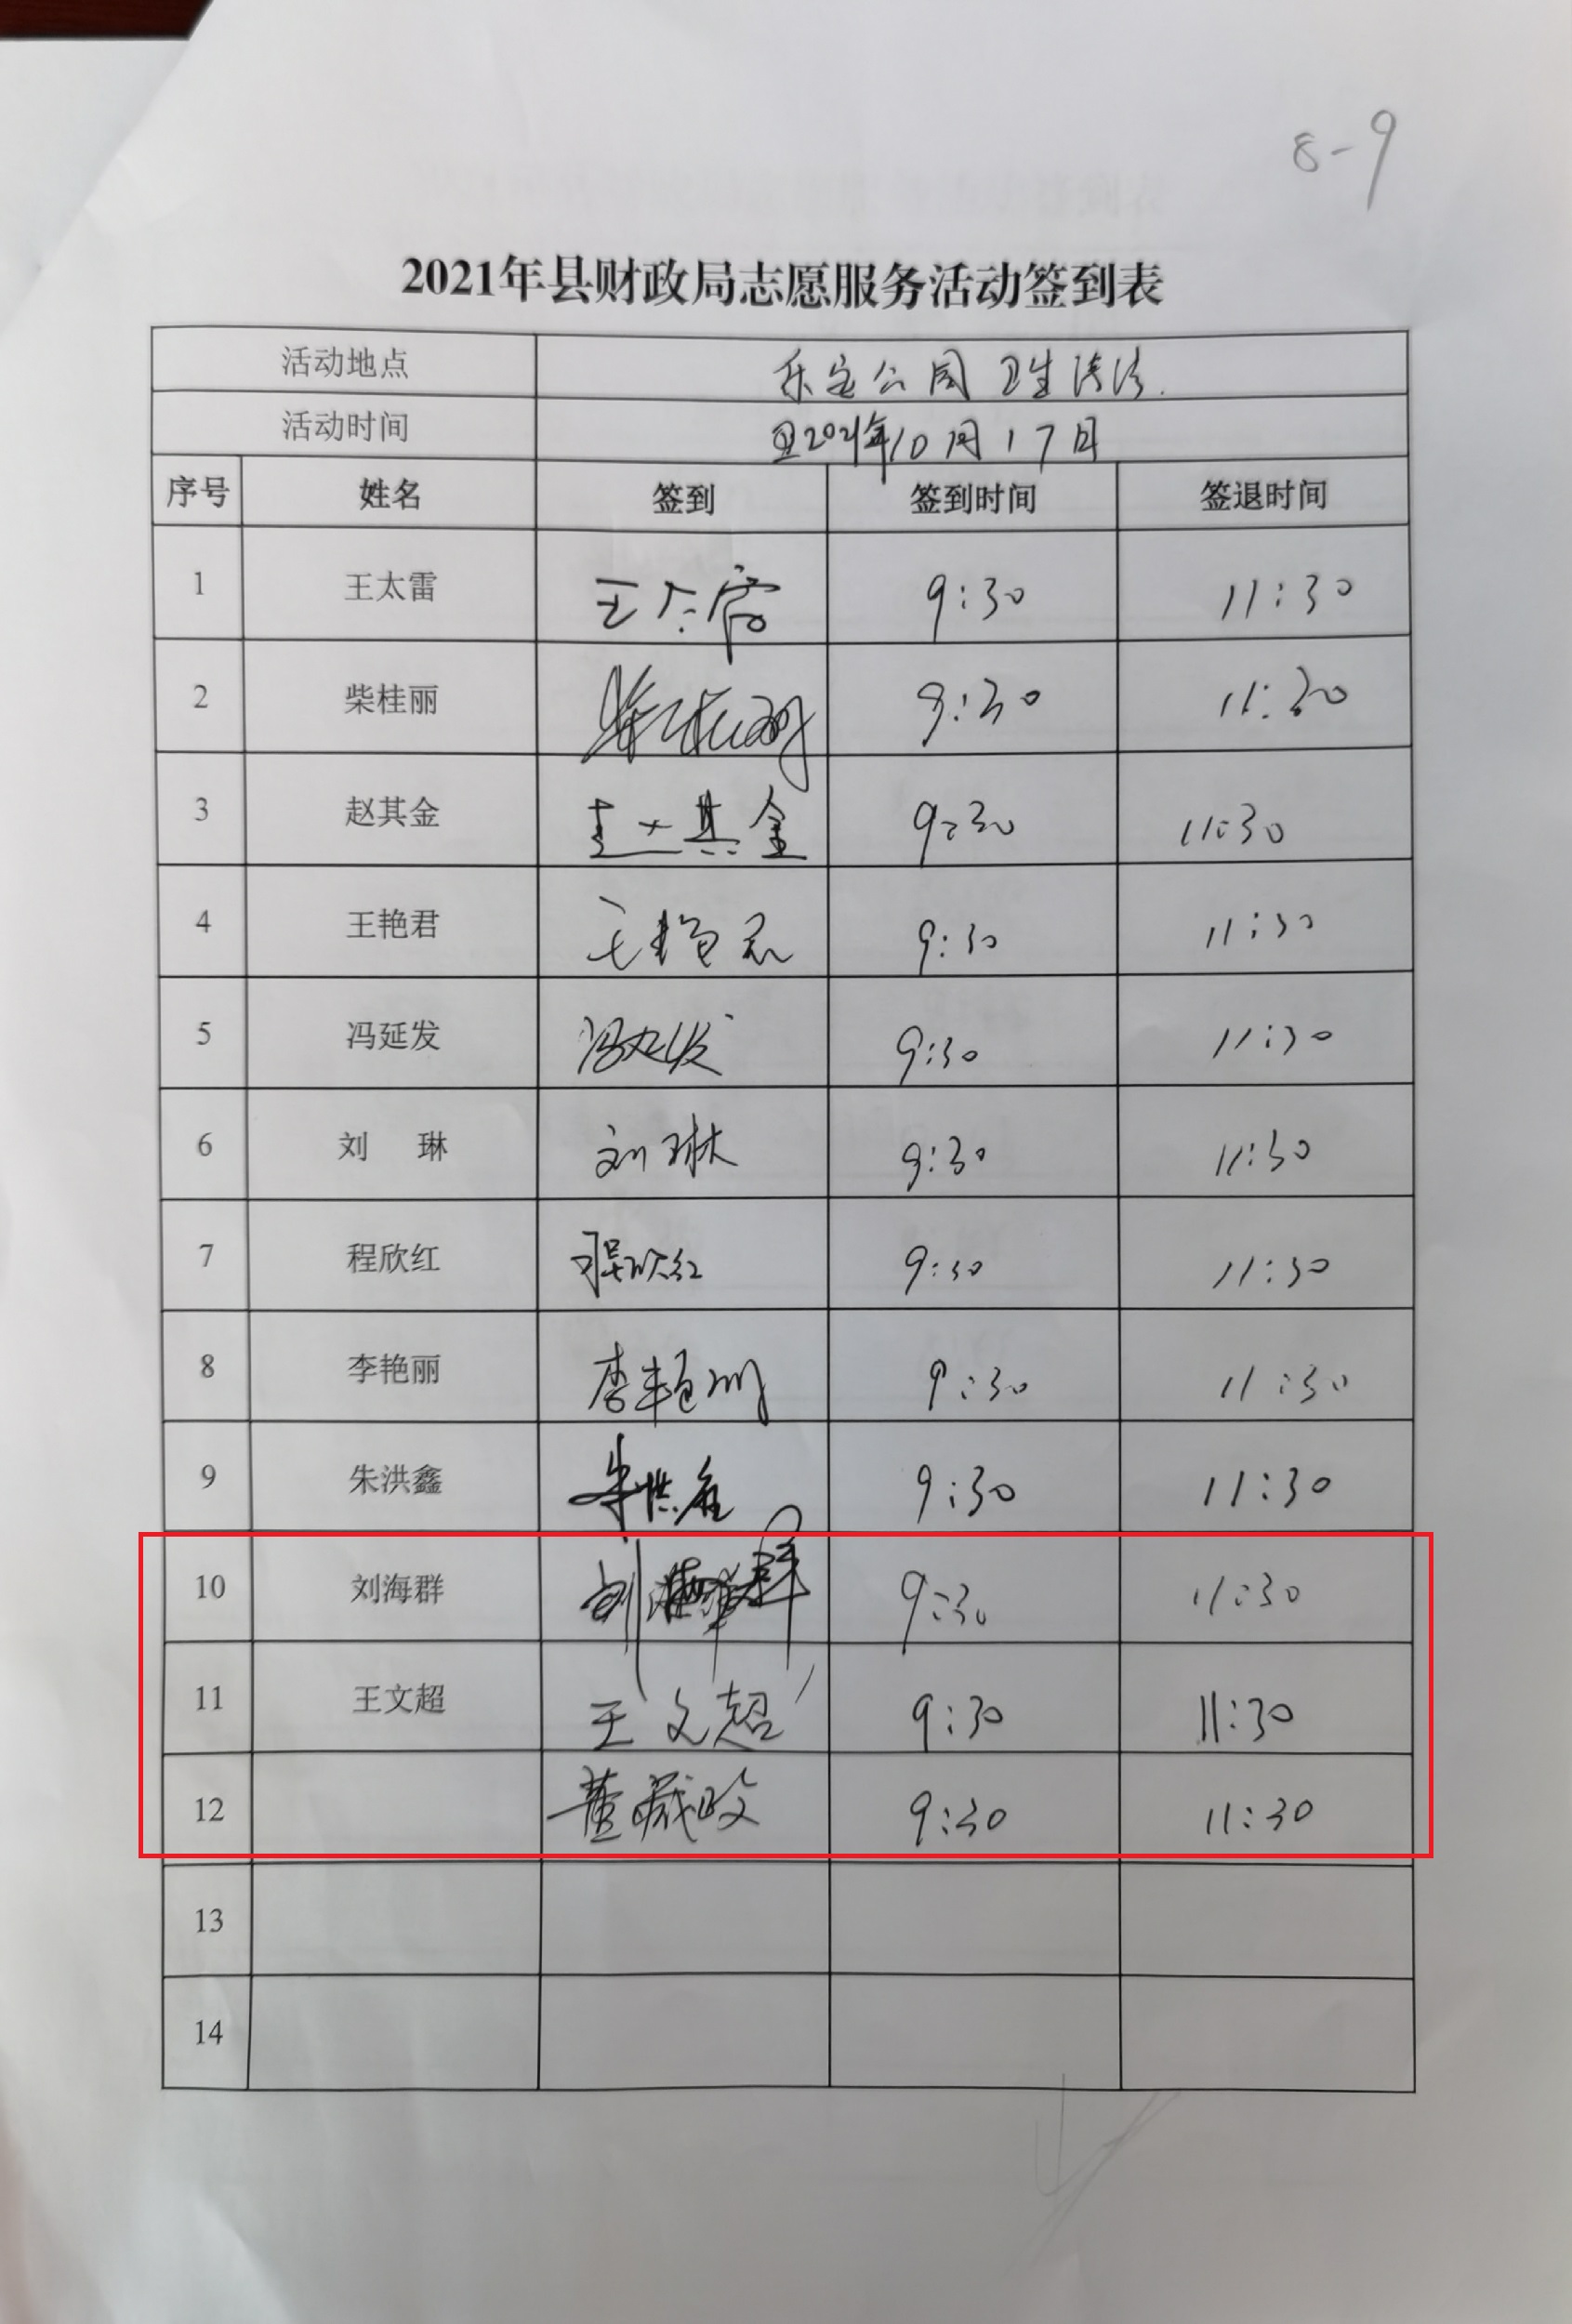 8-9
2021年县财政局志愿服务活动签到表
活动地点 乐安公园 卫生清洁.
活动时间 2021年10月17日
序号 姓名 签到 签到时间 签退时间
1 王太雷 王太雷 9:30 11:30
2 柴桂丽 柴桂丽 9:30 11:30
3 赵其金 赵其金 9:30 11:30
4 王艳君 王艳君 9:30 11:30
5 冯延发 冯延发 9:30 11:30
6 刘 琳 刘琳 9:30 11:30
7 程欣红 程欣红 9:30 11:30
8 李艳丽 李艳丽 9:30 11:30
9 朱洪鑫 朱洪鑫 9:30 11:30
10 刘海群 刘海群 9:30 11:30
11 王文超 王文超 9:30 11:30
12 董 9:30 11:30
13
14